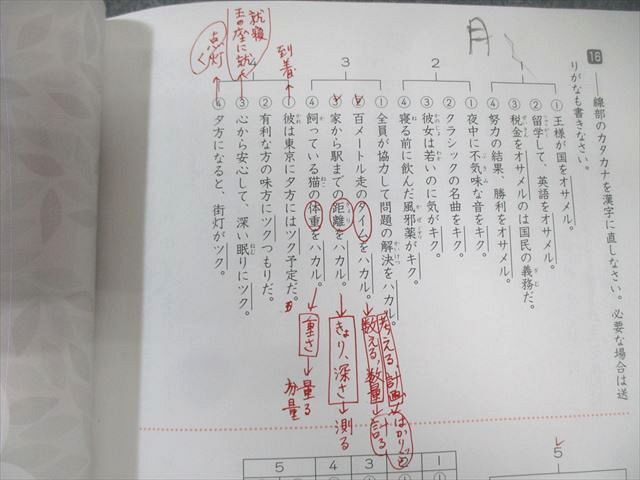 16 ――線部のカタカナを漢字に直しなさい。必要な場合は送
りがなも書きなさい。
1
① 王様が国をオサメル。
② 留学して、英語をオサメル。
③ 税金をオサメルのは国民の義務だ。
④ 努力の結果、勝利をオサメル。
2
① 夜中に不気味な音をキク。
② クラシックの名曲をキク。
③ 彼女は若いのに気がキク。
④ 寝る前に飲んだ風邪薬がキク。
3
① 全員が協力して問題の解決をハカル。
② 百メートル走のタイムをハカル。
③ 家から駅までの距離をハカル。
④ 飼っている猫の体重をハカル。
4
① 彼は東京に夕方にはツク予定だ。
② 有利な方の味方にツクつもりだ。
③ 心から安心して、深い眠りにツク。
④ 夕方になると、街灯がツク。
月
考える、計画
はかりごと
数える、数量
計る
きょり、深さ
測る
重さ
量る
分量
到着
就寝
王の座に就く
点灯
5
5 4 3 2 1